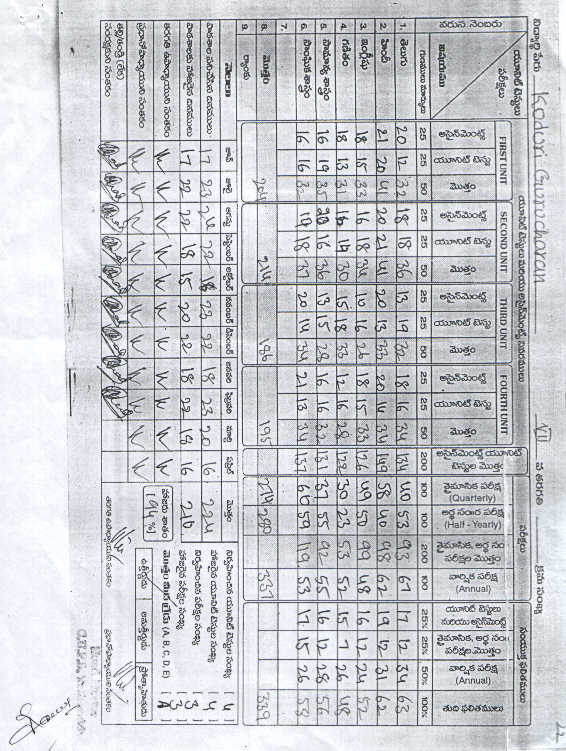 విద్యార్థి పేరు Kodori Gurucharan VII వ తరగతి క్రమ సంఖ్య
యూనిట్ టెస్టులు పరీక్షలు
యూనిట్ టెస్టులు మరియు అసైన్‌మెంట్స్
పరీక్షలు
సంయుక్త ఫలితములు
FIRST UNIT SECOND UNIT THIRD UNIT FOURTH UNIT
వరుస నెంబరు విషయము అసైన్‌మెంట్స్ యూనిట్ టెస్టు మొత్తం అసైన్‌మెంట్స్ యూనిట్ టెస్టు మొత్తం అసైన్‌మెంట్స్ యూనిట్ టెస్టు మొత్తం అసైన్‌మెంట్స్ యూనిట్ టెస్టు మొత్తం అసైన్‌మెంట్స్ యూనిట్ టెస్టుల మొత్తం (Quarterly) (Half - Yearly) (Annual) (Annual) తుది ఫలితములు
25 25 50 25 25 50 25 25 50 25 25 50 200 100 100 200 100 25% 25% 50% 100%
1. తెలుగు 20 12 32 18 18 36 13 19 32 18 16 34 134 40 53 93 67 17 12 34 63
2. హింది 21 20 41 20 21 41 20 13 33 20 14 34 149 58 40 98 62 19 12 31 62
3. ఇంగ్లీషు 18 15 33 16 18 34 10 16 26 18 15 33 126 49 50 99 48 16 12 24 52
4. గణితం 18 13 31 16 14 30 15 18 33 12 16 28 122 30 23 53 52 15 7 26 48
5. సామాన్య శాస్త్రం 16 19 35 20 16 36 13 15 28 16 16 32 131 37 55 92 55 16 12 28 56
6. సాంఘిక శాస్త్రం 16 16 32 19 18 37 20 14 34 21 13 34 137 60 59 119 53 17 15 26 58
7.
8. మొత్తం 204 214 186 195 274 280 337 339
9. ర్యాంకు
నెలలు జూన్ జూలై ఆగస్టు సెప్టెంబర్ అక్టోబర్ నవంబర్ డిసెంబర్ జనవరి ఫిబ్రవరి మార్చి ఏప్రిల్ మొత్తం
17 23 24 22 18 22 22 18 23 20 16 224
17 22 22 18 15 20 22 18 22 18 16 210
హాజరు శాతం (94%)
తరగతి ఉపాధ్యాయుని సంతకం
ప్రధానోపాధ్యాయుని సంతకం
తల్లి/తండ్రి (లేక) సంరక్షకుని సంతకం
నిర్వహించిన యూనిట్ టెస్టుల సంఖ్య 4
హాజరైన యూనిట్ టెస్టుల సంఖ్య 4
నిర్వహించిన పరీక్షల సంఖ్య 3
హాజరైన పరీక్షల సంఖ్య 3
మొత్తం మీద గ్రేడు (A, B, C, D, E) A
ఉత్తీర్ణుడు
తరగతి ఉపాధ్యాయుని సంతకం
ప్రధానోపాధ్యాయుని సంతకం